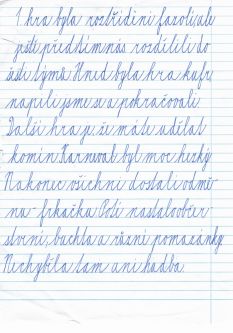 1. hra byla roztřídění fazolí, ale
ještě předtím nás rozdělili do
šesti týmů. Hned byla hra kufr
napili jsme se a pokračovali.
Další hra je, že máte udělat
komín. Karneval byl moc hezký.
Nakonec všichni dostali odmě-
nu - frkačku. Poté nastalo občer-
stvení, buchta a různé pomazánky.
Nechyběla tam ani hudba.